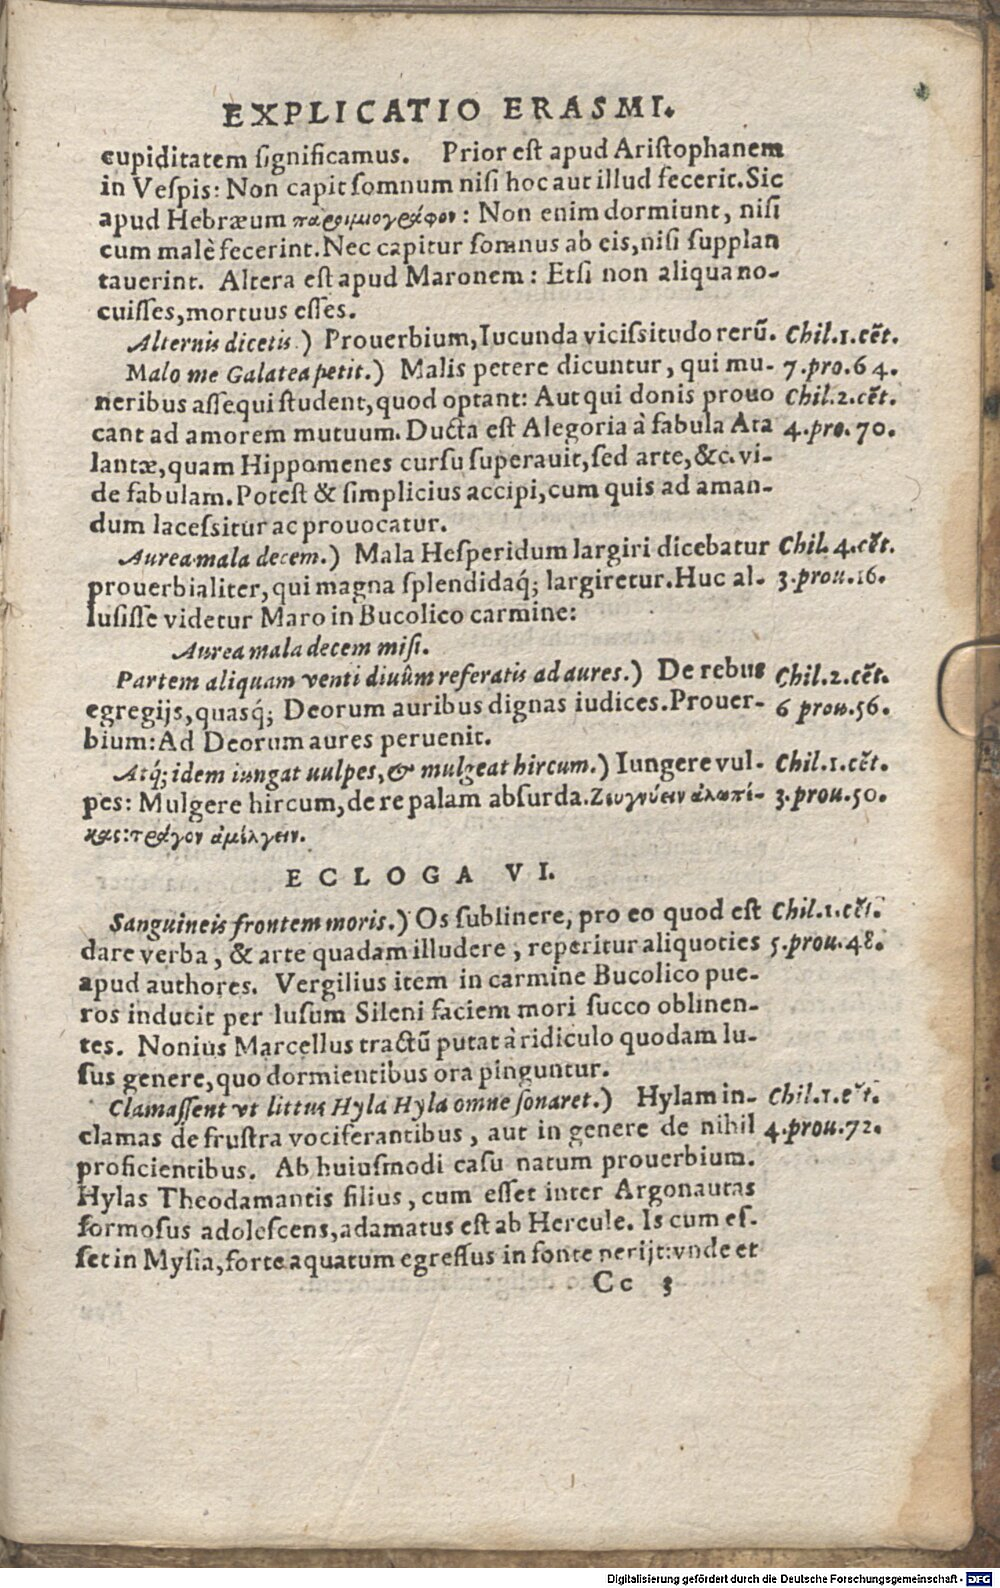 EXPLICATIO ERASMI.
cupiditatem significamus. Prior est apud Aristophanem
in Vespis: Non capit somnum nisi hoc aut illud fecerit. Sic
apud Hebræum παροιμιογράφον: Non enim dormiunt, nisi
cum malè fecerint. Nec capitur somnus ab eis, nisi supplan
tauerint. Altera est apud Maronem: Etsi non aliqua no-
cuisses, mortuus esses.
Alternis dicetis) Prouerbium, Iucunda vicissitudo rerū. Chil.1.cēt.
Malo me Galatea petit.) Malis petere dicuntur, qui mu- 7.pro.64.
neribus assequi student, quod optant: Aut qui donis prouo Chil.2.cēt.
cant ad amorem mutuum. Ducta est Alegoria à fabula Ata 4.pro.70.
lantæ, quam Hippomenes cursu superauit, sed arte, &c. vi-
de fabulam. Potest & simplicius accipi, cum quis ad aman-
dum lacessitur ac prouocatur.
Aurea mala decem.) Mala Hesperidum largiri dicebatur Chil.4.cēt.
prouerbialiter, qui magna splendidaq́; largiretur. Huc al- 3.prou.16.
lusisse videtur Maro in Bucolico carmine:
Aurea mala decem misi.
Partem aliquam venti diuûm referatis ad aures.) De rebus Chil.2.cēt.
egregijs, quasq́; Deorum auribus dignas iudices. Prouer- 6 prou.56.
bium: Ad Deorum aures peruenit.
Atq́; idem iungat uulpes, & mulgeat hircum.) Iungere vul- Chil.1.cēt.
pes: Mulgere hircum, de re palam absurda. Ζευγνύειν ἀλωπέ- 3.prou.50.
κας: τράγον ἀμέλγειν.
ECLOGA VI.
Sanguineis frontem moris.) Os sublinere, pro eo quod est Chil.1.cēt.
dare verba, & arte quadam illudere, reperitur aliquoties 5.prou.48.
apud authores. Vergilius item in carmine Bucolico pue-
ros inducit per lusum Sileni faciem mori succo oblinen-
tes. Nonius Marcellus tractū putat à ridiculo quodam lu-
sus genere, quo dormientibus ora pinguntur.
Clamassent vt littus Hyla Hyla omne sonaret.) Hylam in- Chil.1.cēt.
clamas de frustra vociferantibus, aut in genere de nihil 4.prou.72.
proficientibus. Ab huiusmodi casu natum prouerbium.
Hylas Theodamantis filius, cum esset inter Argonautas
formosus adolescens, adamatus est ab Hercule. Is cum es-
set in Mysia, forte aquatum egressus in fonte perijt: vnde et
Cc 3
Digitalisierung gefördert durch die Deutsche Forschungsgemeinschaft - DFG